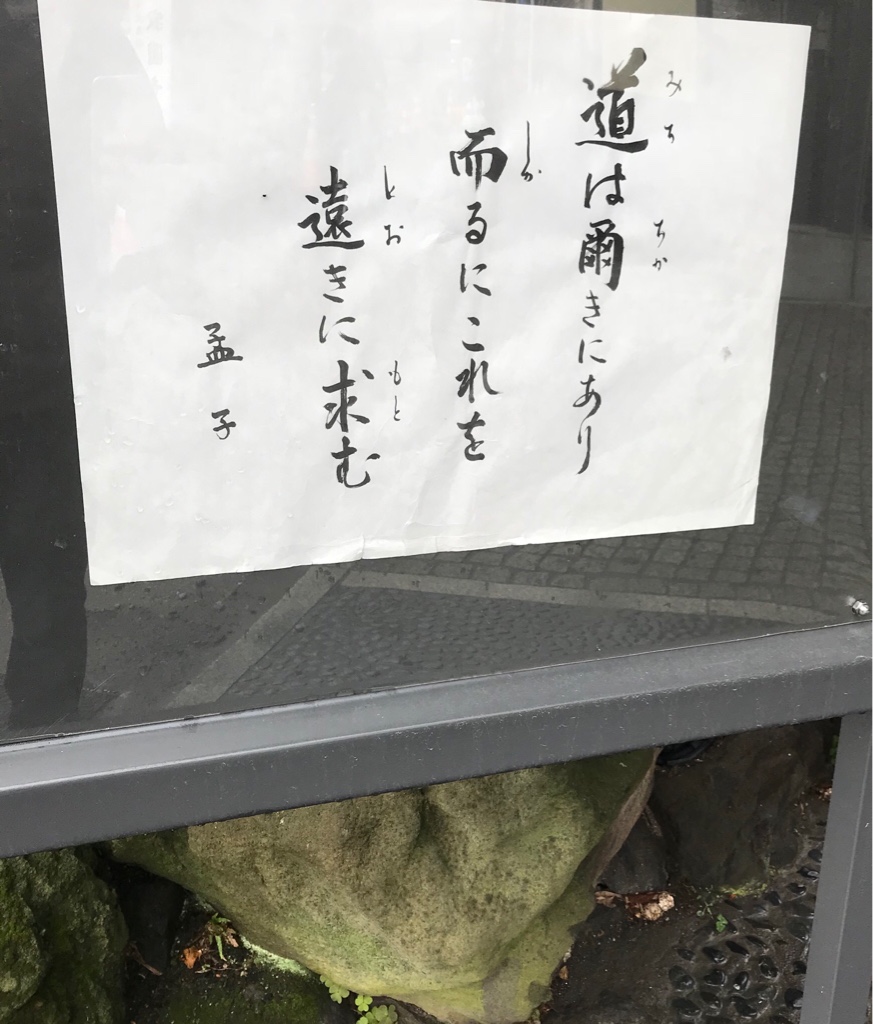 道は爾きにあり
みち
ちか
而るにこれを
しか
遠きに求む
とお
もと
孟子